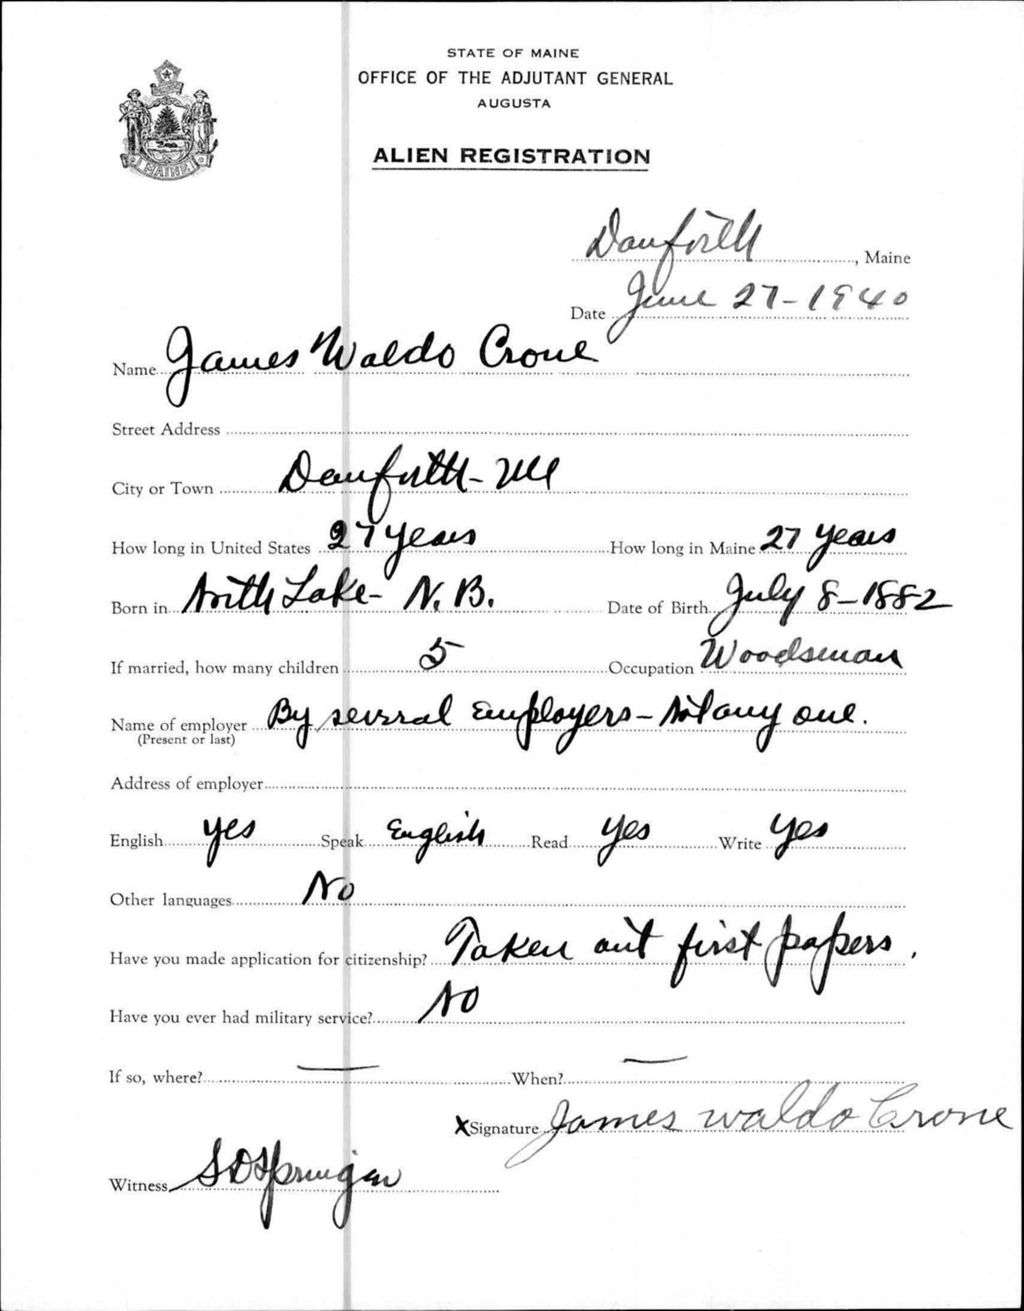 STATE OF MAINE
OFFICE OF THE ADJUTANT GENERAL
AUGUSTA
ALIEN REGISTRATION
MAINE
Danforth, Maine
Date June 27-1940
Name James Waldo Crone
Street Address
City or Town Danforth - Me
How long in United States 27 years How long in Maine 27 years
Born in North Lake - N.B. Date of Birth July 8-1882
If married, how many children 5 Occupation Woodsman
Name of employer By several employers - Not any one.
(Present or last)
Address of employer
English yes Speak English Read Yes Write Yes
Other languages No
Have you made application for citizenship? Taken out first papers.
Have you ever had military service? No
If so, where? — When? —
X Signature James Waldo Crone
Witness S D